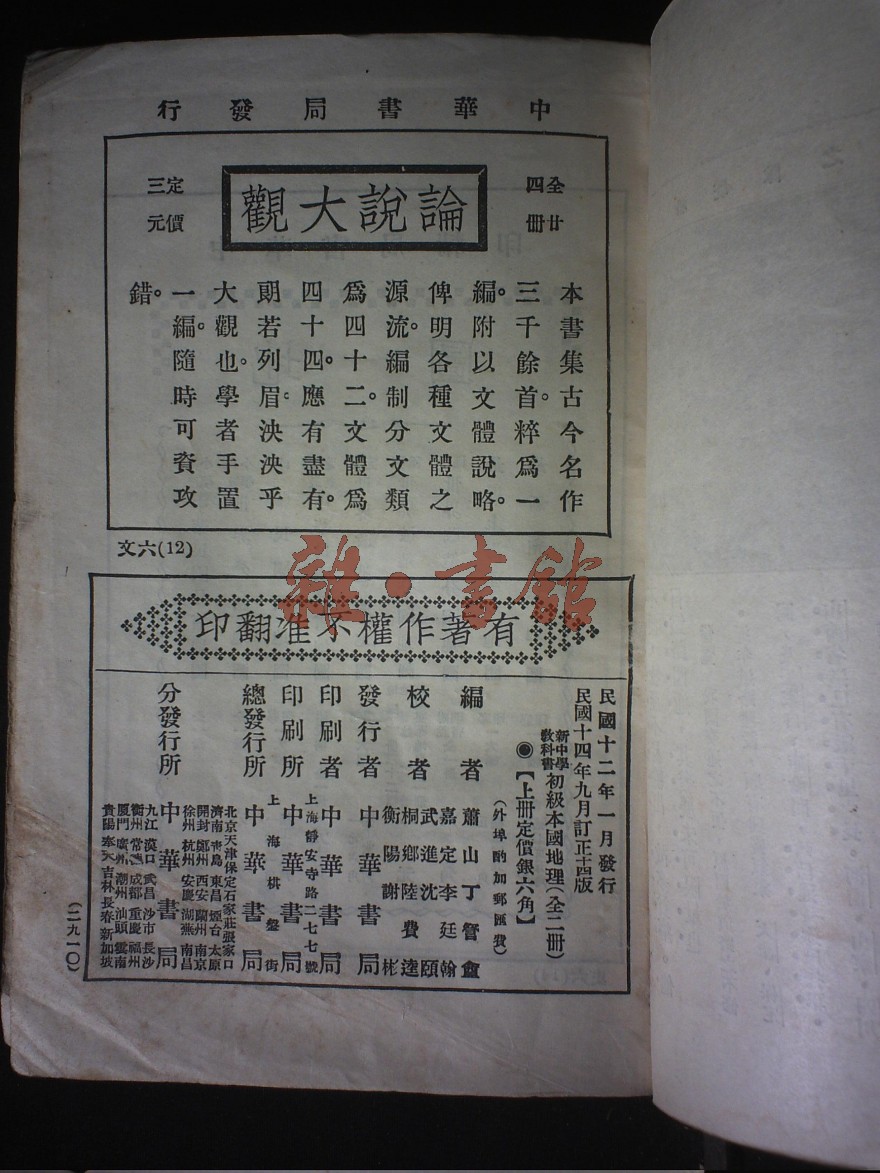 中華書局發行
全廿四冊
論說大觀
定價三元
本書集古今名作
三千餘首。粹爲一
編。附以文體說略。
俾明各種文體之
源流。編制分文類
爲四十二。文體爲
四十四。應有盡有。
朗若列眉。泱泱乎
大觀也。學者手置
一編。隨時可資攻
錯。
文六(12)
雜·書館
有著作權不准翻印
民國十二年一月發行
民國十四年九月訂正十四版
新中學教科書初級本國地理(全二冊)
◉【上冊定價銀六角】
(外埠酌加郵匯費)
編者 蕭山丁詧盦
校者 嘉定李廷翰
武進沈頤
桐鄉陸費逵
衡陽謝彬
發行者 中華書局
印刷者 中華書局
上海靜安寺路二七七號
印刷所 中華書局
上海棋盤街
總發行所 中華書局
北京天津保定石家莊張家口
濟南青島東昌煙台太原
開封鄭州西安蘭州南京
徐州杭州安慶蕪湖南昌
分發行所 中華書局
九江漢口武昌沙市長沙
衡州常德成都重慶福州
厦門廣州潮州汕頭雲南
貴陽奉天吉林長春新加坡
(二九一〇)